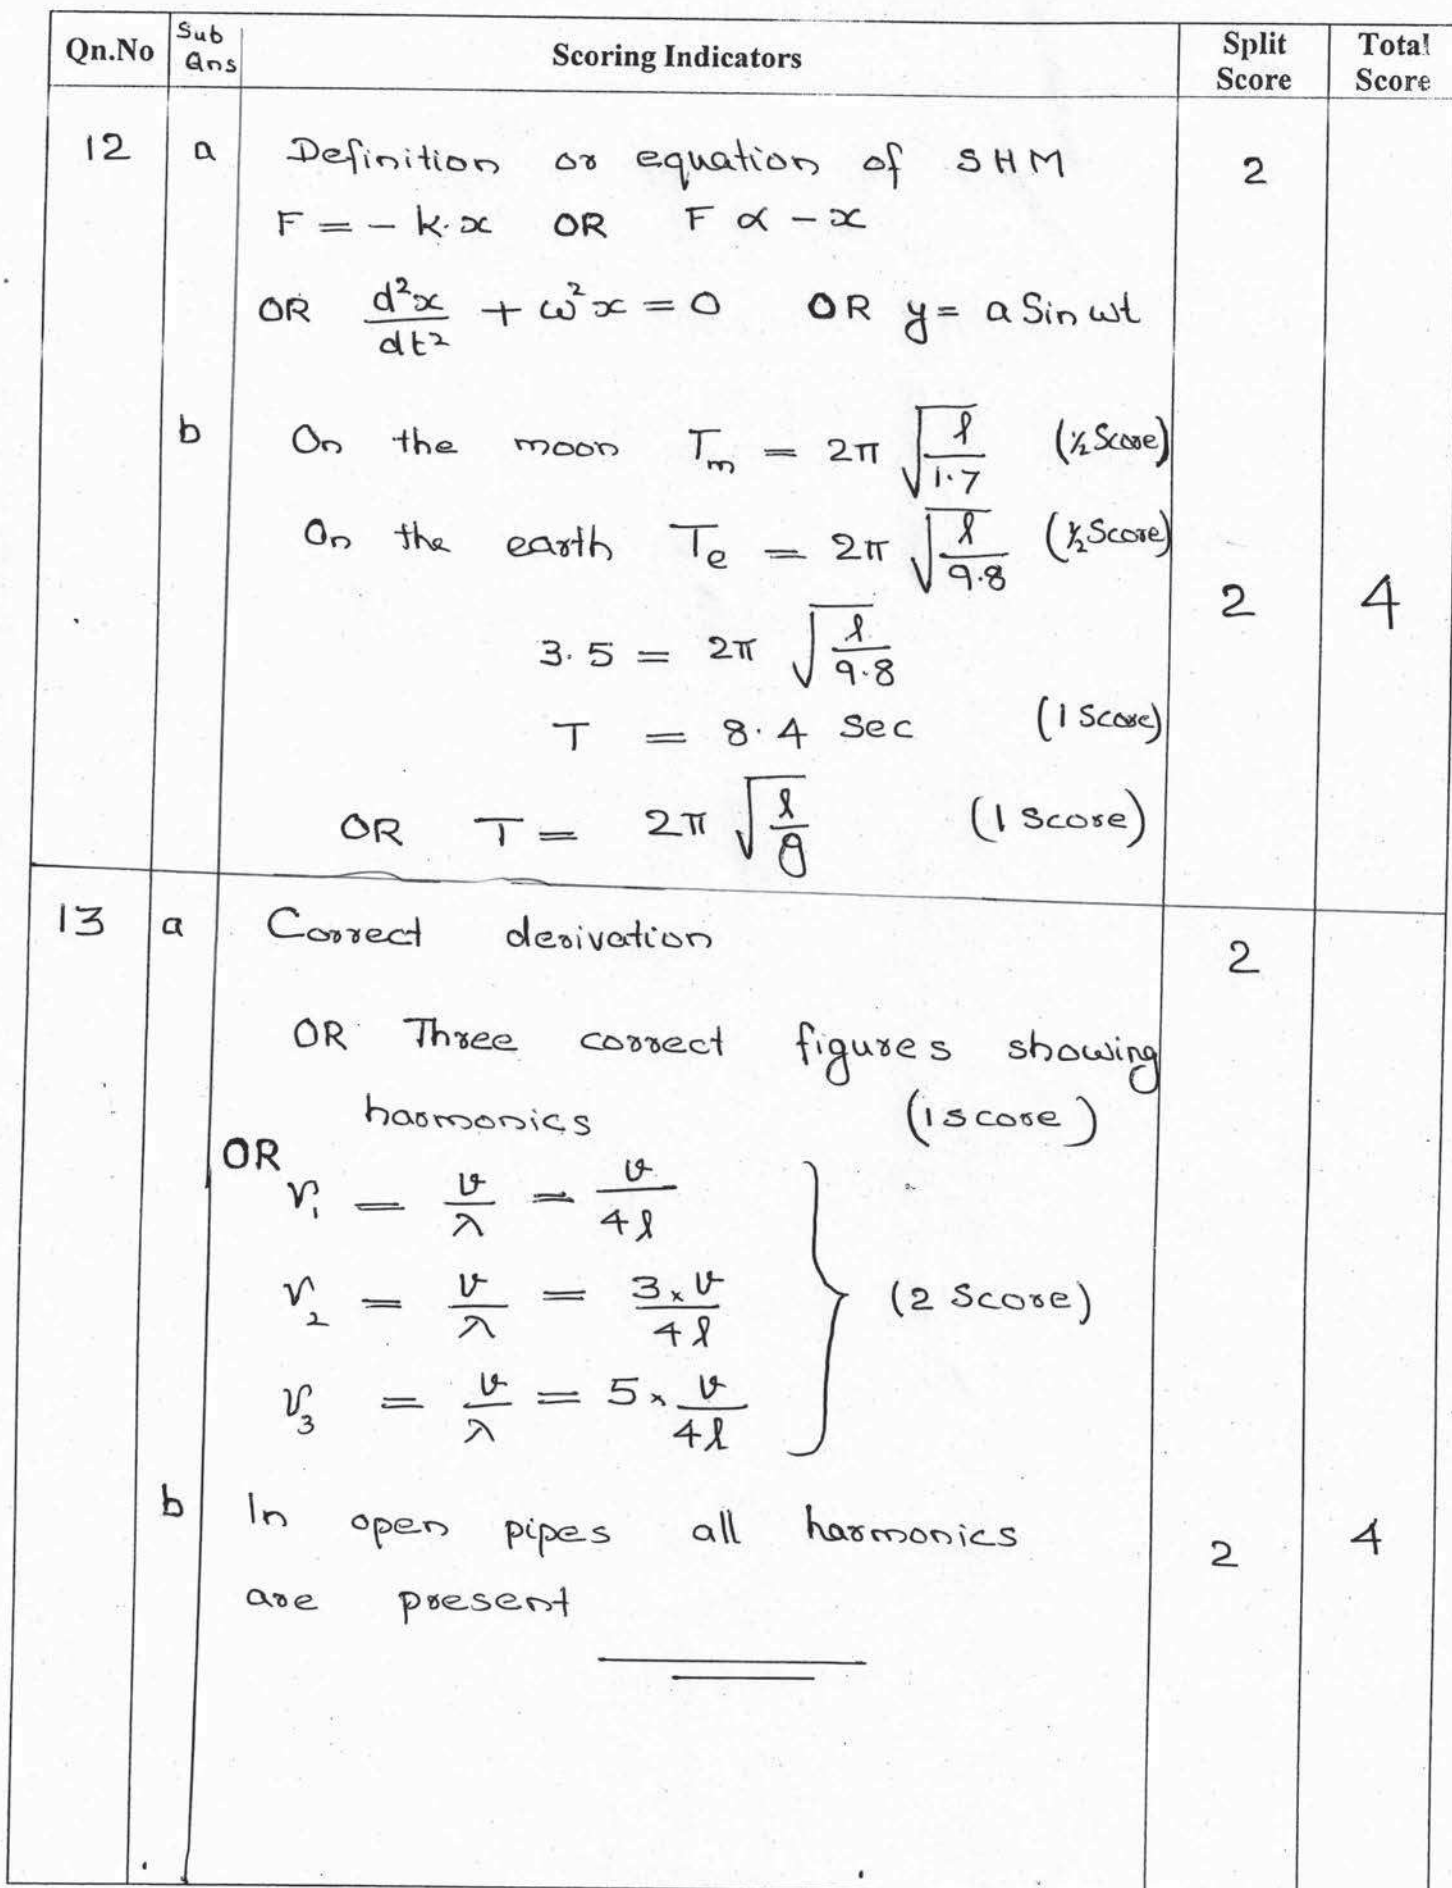 Qn.No Sub Ans Scoring Indicators Split Score Total Score
12 a Definition or equation of SHM 2
F = - k.x OR F ∝ - x
OR d²x/dt² + ω²x = 0 OR y = a Sin ωt
b On the moon Tm = 2π √(l/1.7) (½ Score)
On the earth Te = 2π √(l/9.8) (½ Score)
2 4
3.5 = 2π √(l/9.8)
T = 8.4 Sec (1 Score)
OR T = 2π √(l/g) (1 Score)
13 a Correct derivation 2
OR Three correct figures showing
harmonics (1 score)
OR
ν₁ = v/λ = v/4l
ν₂ = v/λ = 3×v/4l (2 Score)
ν₃ = v/λ = 5×v/4l
b In open pipes all harmonics 2 4
are present